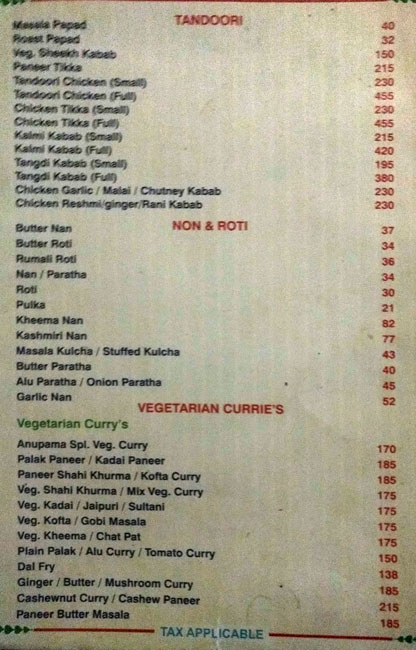 TANDOORI
Masala Papad 40
Roast Papad 32
Veg. Sheekh Kabab 150
Paneer Tikka 215
Tandoori Chicken (Small) 230
Tandoori Chicken (Full) 455
Chicken Tikka (Small) 230
Chicken Tikka (Full) 455
Kalmi Kabab (Small) 215
Kalmi Kabab (Full) 420
Tangdi Kabab (Small) 195
Tangdi Kabab (Full) 380
Chicken Garlic / Malai / Chutney Kabab 230
Chicken Reshmi/ginger/Rani Kabab 230
NON & ROTI
Butter Nan 37
Butter Roti 34
Rumali Roti 36
Nan / Paratha 34
Roti 30
Pulka 21
Kheema Nan 82
Kashmiri Nan 77
Masala Kulcha / Stuffed Kulcha 43
Butter Paratha 40
Alu Paratha / Onion Paratha 45
Garlic Nan 52
VEGETARIAN CURRIE'S
Vegetarian Curry's
Anupama Spl. Veg. Curry 170
Palak Paneer / Kadai Paneer 185
Paneer Shahi Khurma / Kofta Curry 185
Veg. Shahi Khurma / Mix Veg. Curry 175
Veg. Kadai / Jaipuri / Sultani 175
Veg. Kofta / Gobi Masala 175
Veg. Kheema / Chat Pat 175
Plain Palak / Alu Curry / Tomato Curry 150
Dal Fry 138
Ginger / Butter / Mushroom Curry 185
Cashewnut Curry / Cashew Paneer 215
Paneer Butter Masala 185
TAX APPLICABLE